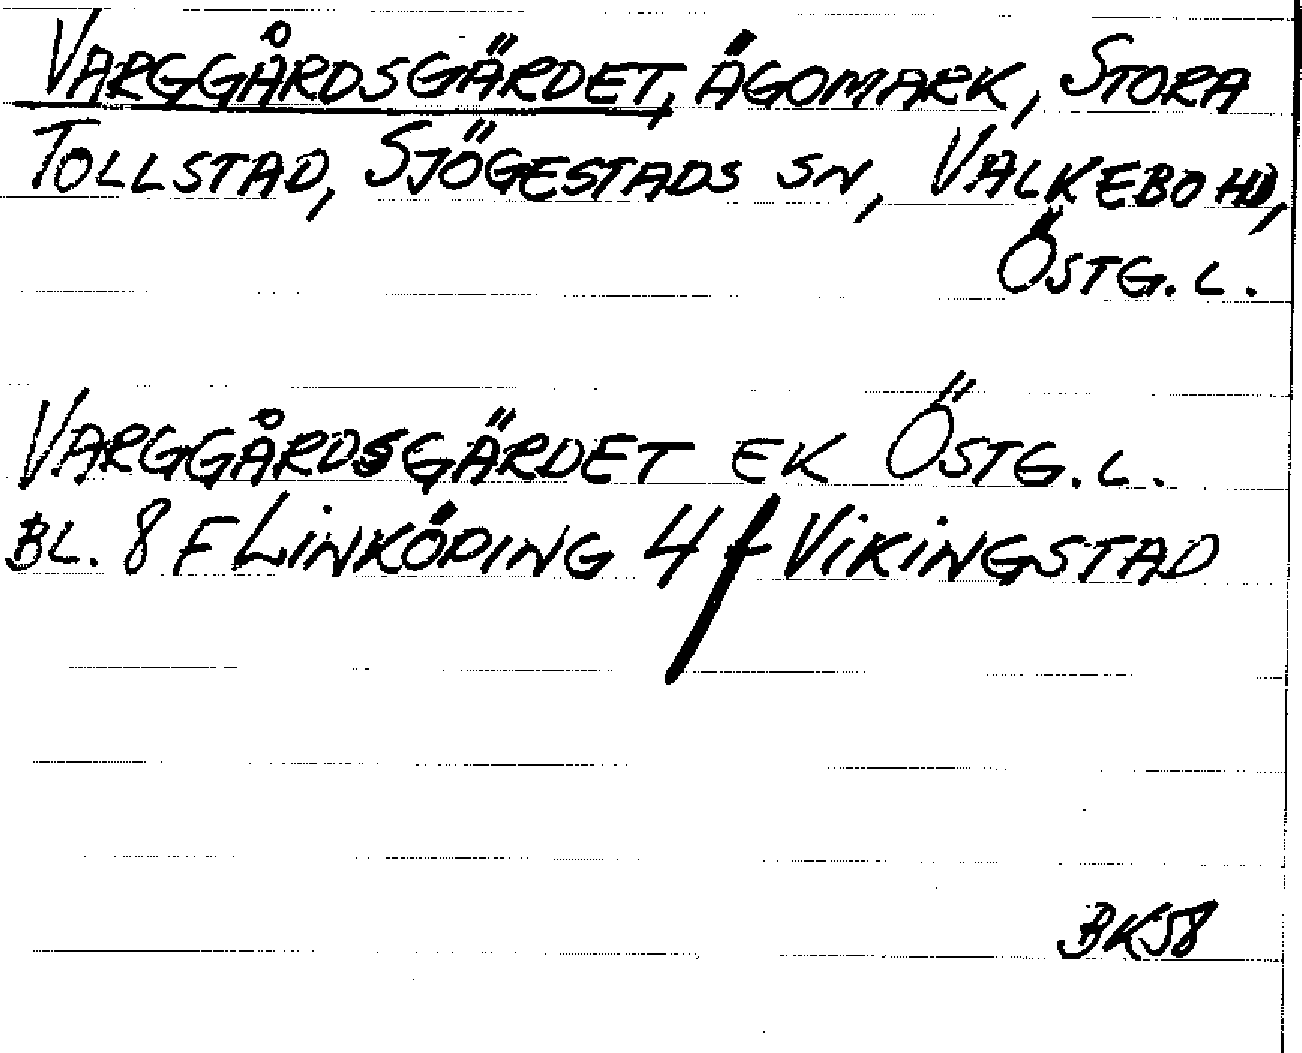 VARGGÅRDSGÄRDET, ÄGOMARK, STORA
TOLLSTAD, SJÖGESTADS SN, VALKEBO HD,
ÖSTG. L.
VARGGÅRDSGÄRDET EK ÖSTG. L.
BL. 8 F LINKÖPING 4 f VIKINGSTAD
BK58